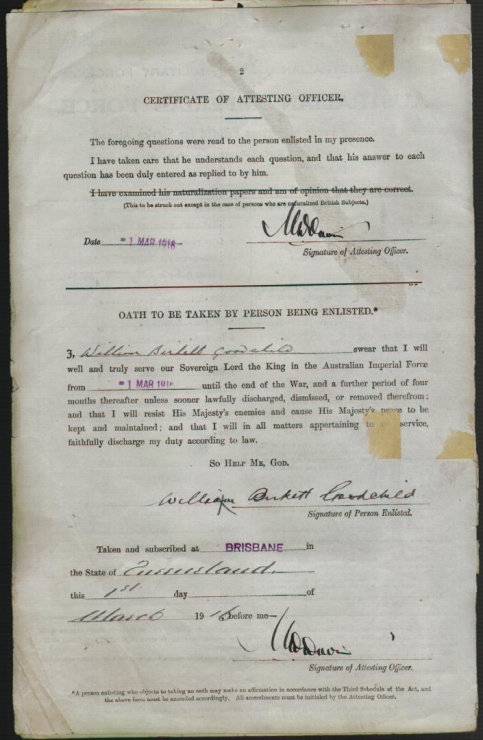 2
CERTIFICATE OF ATTESTING OFFICER.
The foregoing questions were read to the person enlisted in my presence.
I have taken care that he understands each question, and that his answer to each
question has been duly entered as replied to by him.
I have examined his naturalization papers and am of opinion that they are correct.
(This to be struck out except in the case of persons who are naturalized British Subjects.)
Date 1 MAR 1916
Signature of Attesting Officer.
OATH TO BE TAKEN BY PERSON BEING ENLISTED.*
3, William Birkett Goodchild swear that I will
well and truly serve our Sovereign Lord the King in the Australian Imperial Force
from 1 MAR 1916 until the end of the War, and a further period of four
months thereafter unless sooner lawfully discharged, dismissed, or removed therefrom;
and that I will resist His Majesty's enemies and cause His Majesty's peace to be
kept and maintained; and that I will in all matters appertaining to service,
faithfully discharge my duty according to law.
SO HELP ME, GOD.
William Birkett Goodchild
Signature of Person Enlisted.
Taken and subscribed at BRISBANE in
the State of Queensland
this 1st day of
March 1916 before me—
Signature of Attesting Officer.
*A person enlisting who objects to taking an oath may make an affirmation in accordance with the Third Schedule of the Act, and
the above form must be amended accordingly. All amendments must be initialed by the Attesting Officer.